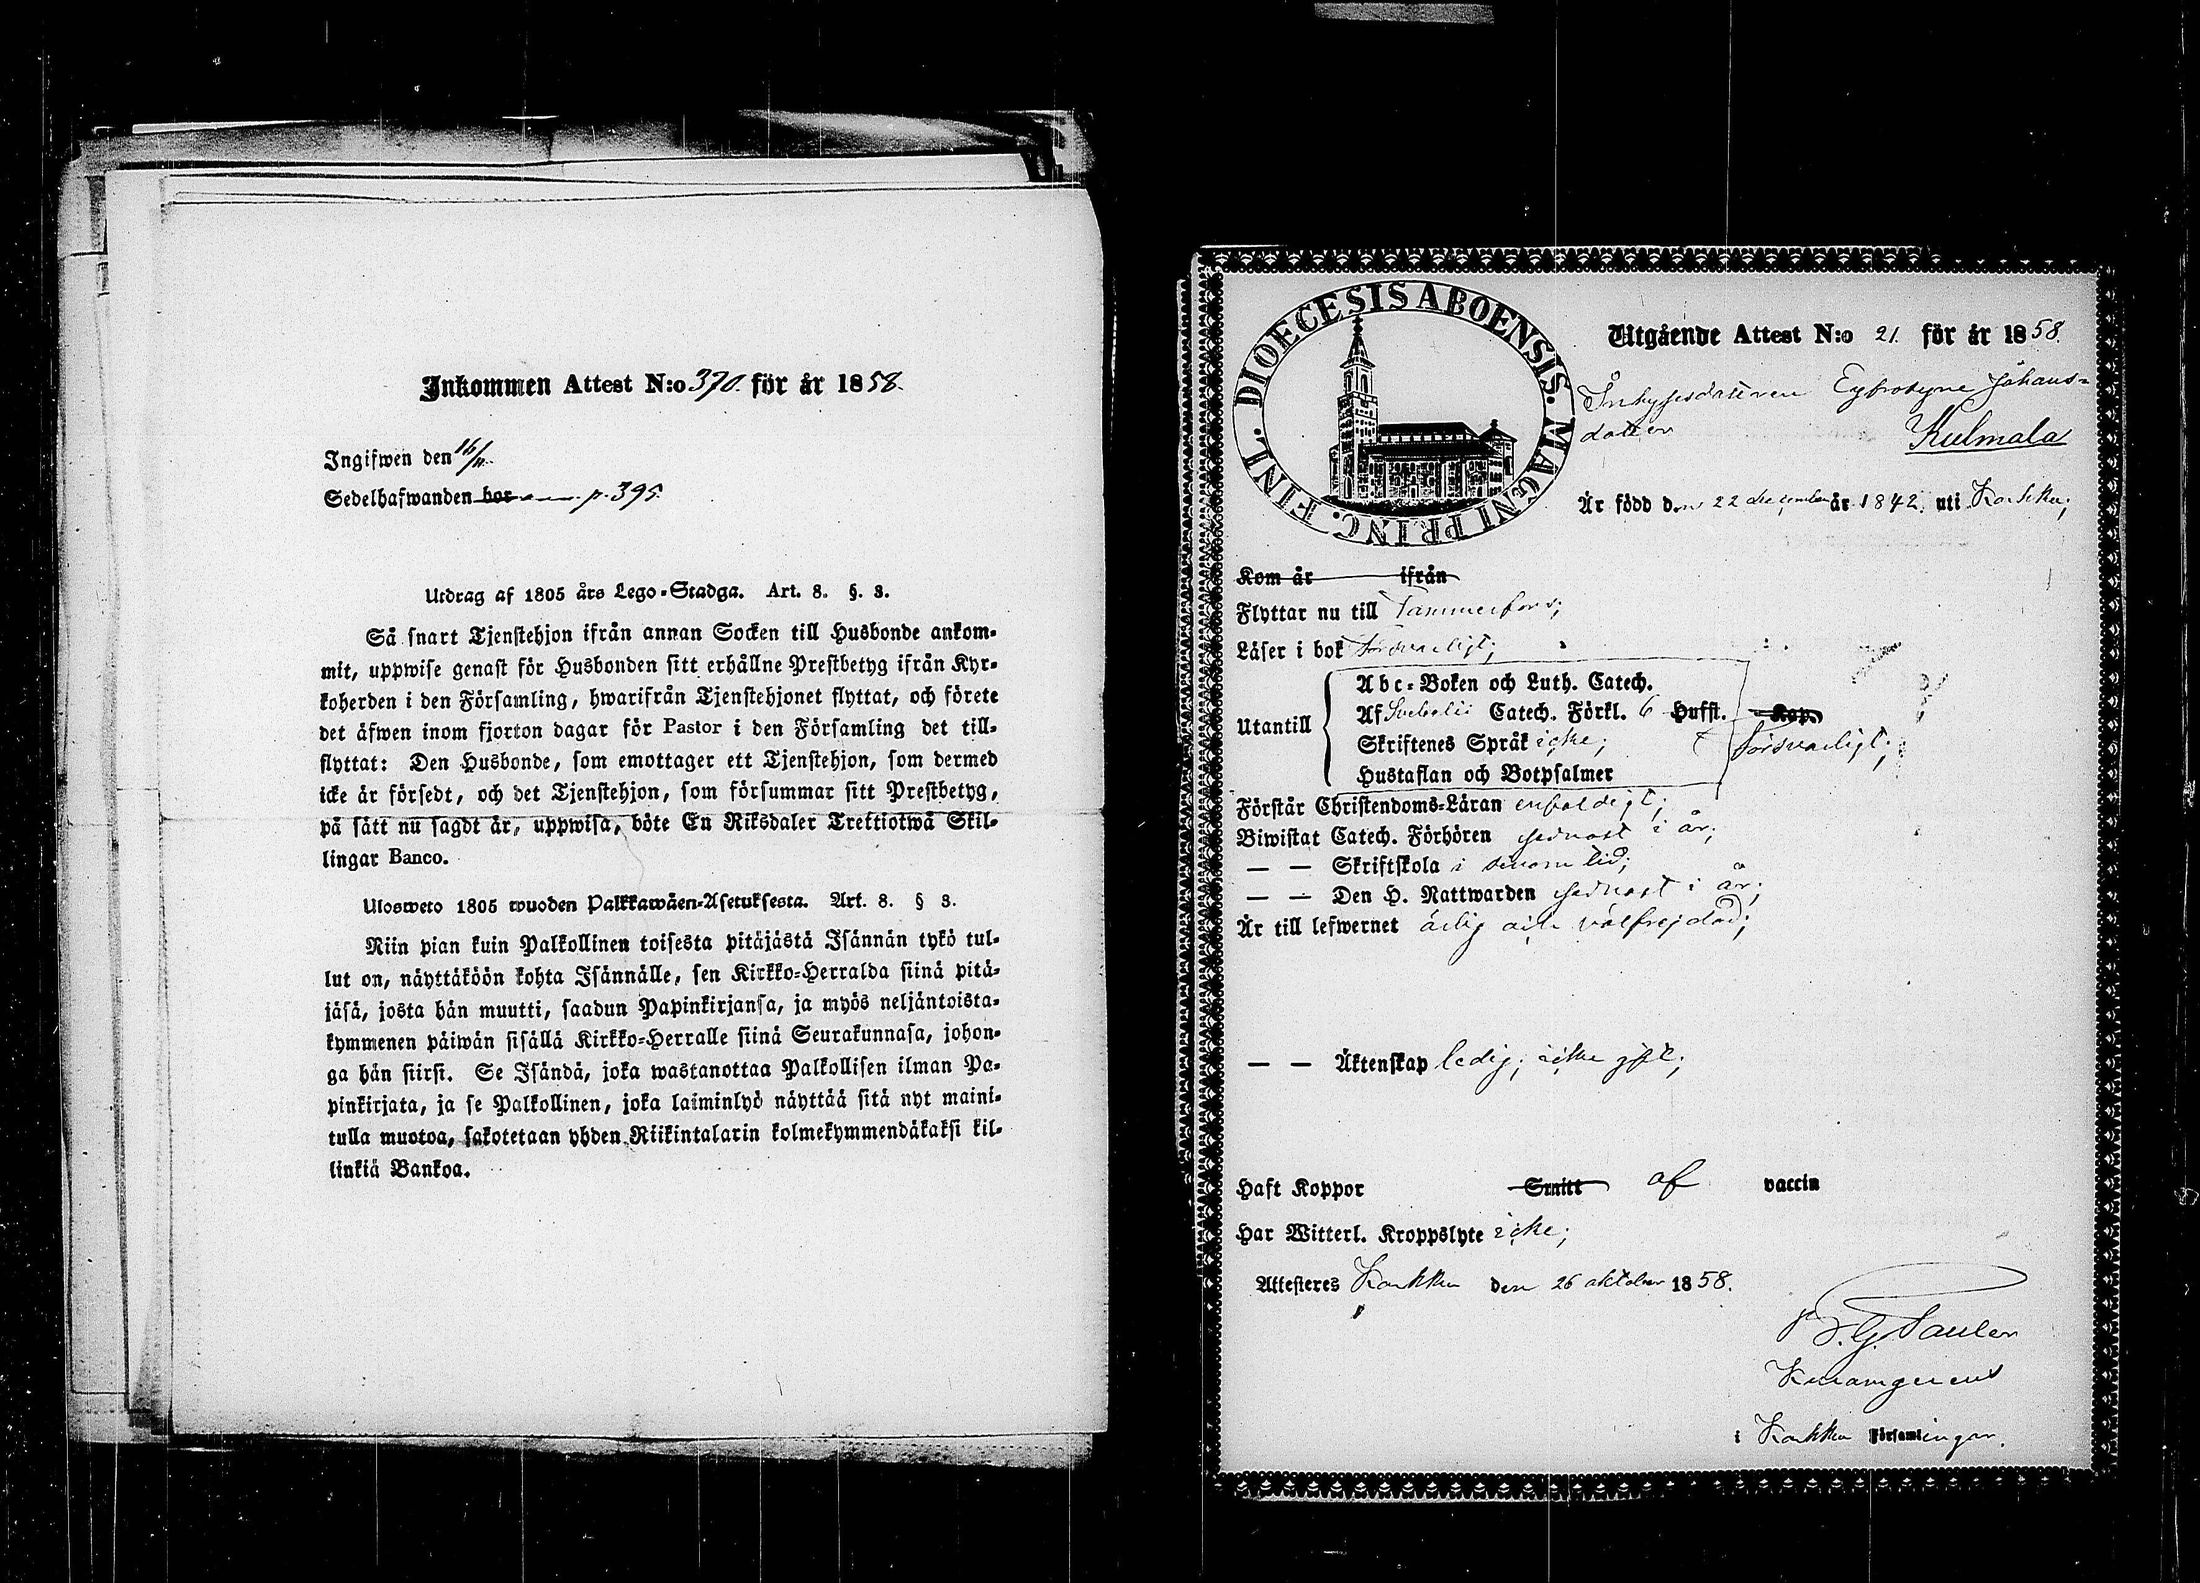 Inkommen Attest N:o 370. för år 1858.
Ingifwen den 16/11.
Sedelhafwanden bor p. 395.
Utdrag af 1805 års Lego-Stadga. Art. 8. §. 3.
Så snart Tjenstehjon ifrån annan Socken till Husbonde ankom-
mit, uppwise genast för Husbonden sitt erhållne Prestbetyg ifrån Kyr-
koherden i den Församling, hwarifrån Tjenstehjonet flyttat, och förete
det äfwen inom fjorton dagar för Pastor i den Församling det till-
flyttat: Den Husbonde, som emottager ett Tjenstehjon, som dermed
icke är försedt, och det Tjenstehjon, som försummar sitt Prestbetyg,
på sätt nu sagdt är, uppwisa, böte En Riksdaler Trettiotwå Skil-
lingar Banco.
Ulosweto 1805 wuoden Palkkawäen-Asetuksesta. Art. 8. § 3.
Niin pian kuin Palkollinen toisesta pitäjästä Isännän tykö tul-
lut on, näyttäköön kohta Isännälle, sen Kirkko-Herralda siinä pitä-
jäsä, josta hän muutti, saadun Papinkirjansa, ja myös neljäntoista-
kymmenen päiwän sisällä Kirkko-Herralle siinä Seurakunnasa, johon-
ga hän siirsi. Se Isändä, joka wastanottaa Palkollisen ilman Pa-
pinkirjata, ja se Palkollinen, joka laiminlyö näyttää sitä nyt maini-
tulla muotoa, sakotetaan yhden Riikintalarin kolmekymmendäkaksi kil-
linkiä Bankoa.
DIOECESIS ABOENSIS. MAGNI PRINC. FINL.
Utgående Attest N:o 21. för år 1858.
Inhysesdotteren Johans-
dotter Kulmala
Är född den 22 december år 1842. uti Karkku;
Kom år ifrån
Flyttar nu till Tammerfors;
Läser i bok försvarligt;
Abc-Boken och Luth. Catech.
Af Svebelii Catech. Förkl. 6 Hufst. Kap.
Utantill
Skriftenes Språk icke; försvarligt;
Hustaflan och Botpsalmer
Förstår Christendoms-Läran enfaldigt;
Biwistat Catech. Förhören sednast i år;
— — Skriftskola i senom tid;
— — Den H. Nattwarden sednast i år;
Är till lefwernet ärlig och välfrejdad;
— — Äktenskap ledig; icke gift;
Haft Koppor Smitt af vaccin
Har Witterl. Kroppslyte icke;
Attesteres Karkku den 26 oktober 1858.
i Karkku Församlingar.